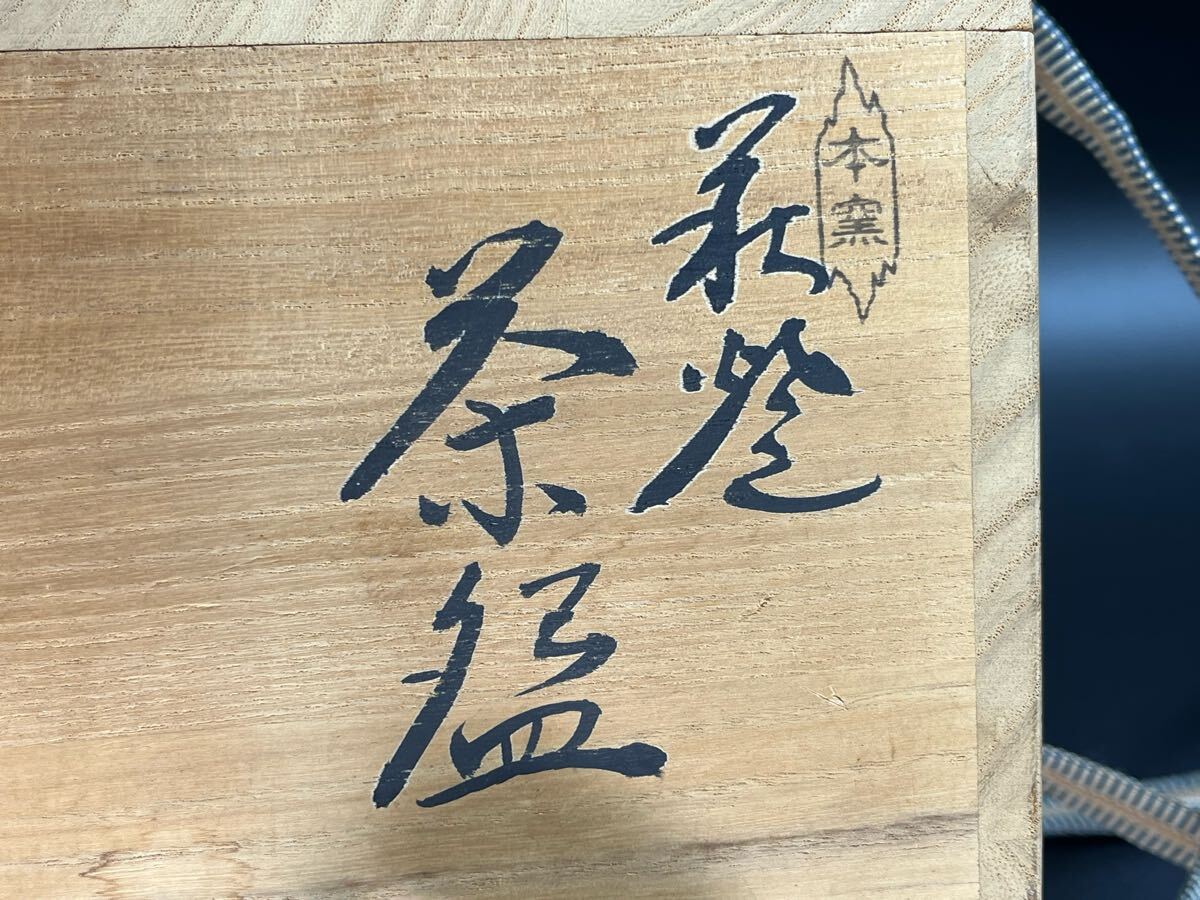 本窯
萩焼
茶盌